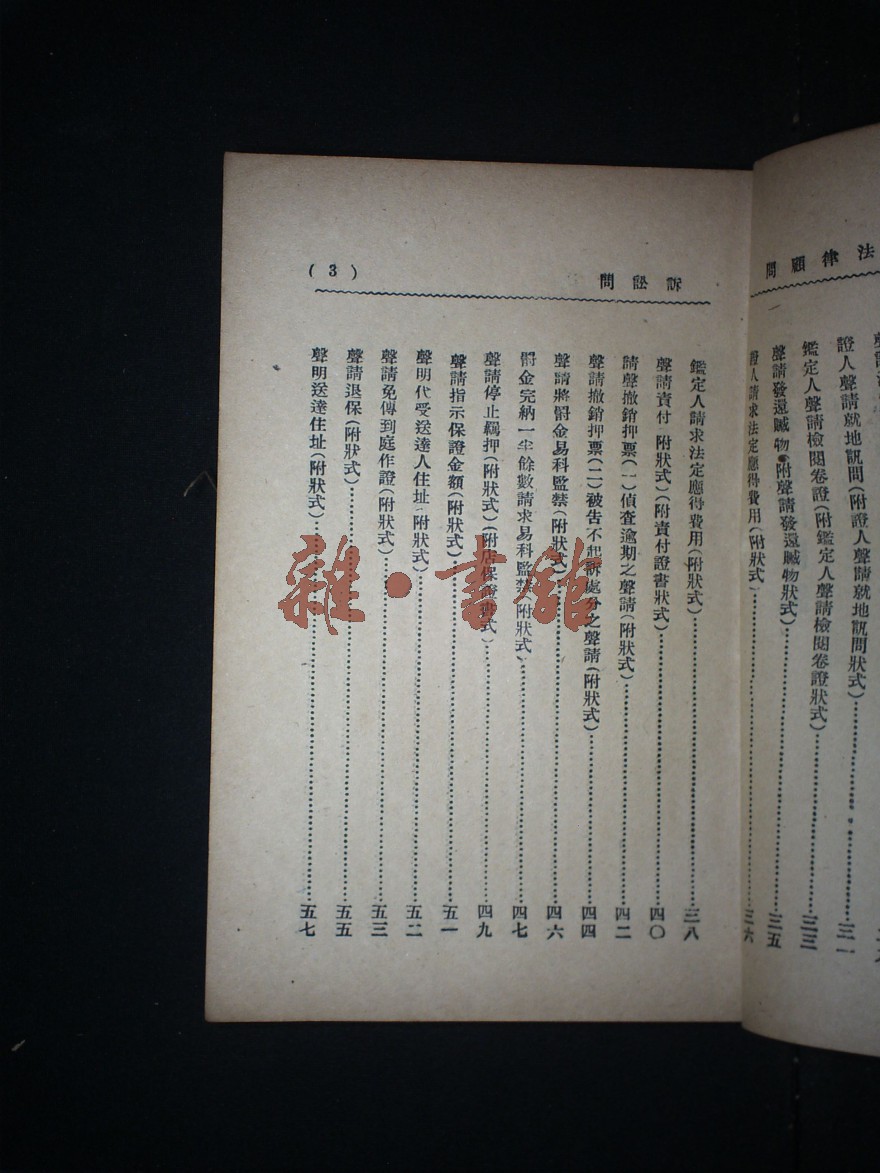 法律顧問
證人聲請就地訊問(附證人聲請就地訊問狀式)……三一
鑑定人聲請檢閱卷證(附鑑定人聲請檢閱卷證狀式)……三三
聲請發還贓物(附聲請發還贓物狀式)……三五
證人請求法定應得費用(附狀式)……三六
訴訟問
(3)
鑑定人請求法定應得費用(附狀式)……三八
聲請責付 附狀式)(附責付證書狀式)……四〇
請聲撤銷押票(一)偵查逾期之聲請(附狀式)……四二
聲請撤銷押票(二)被告不起訴處分之聲請(附狀式)……四四
聲請將罰金易科監禁(附狀式)……四六
罰金完納一半餘數請求易科監禁(附狀式)……四七
聲請停止羈押(附狀式)(附店保證書式)……四九
聲請指示保證金額(附狀式)……五一
聲明代受送達人住址(附狀式)……五二
聲請免傳到庭作證(附狀式)……五三
聲請退保(附狀式)……五五
聲明送達住址(附狀式)……五七
雜·書館